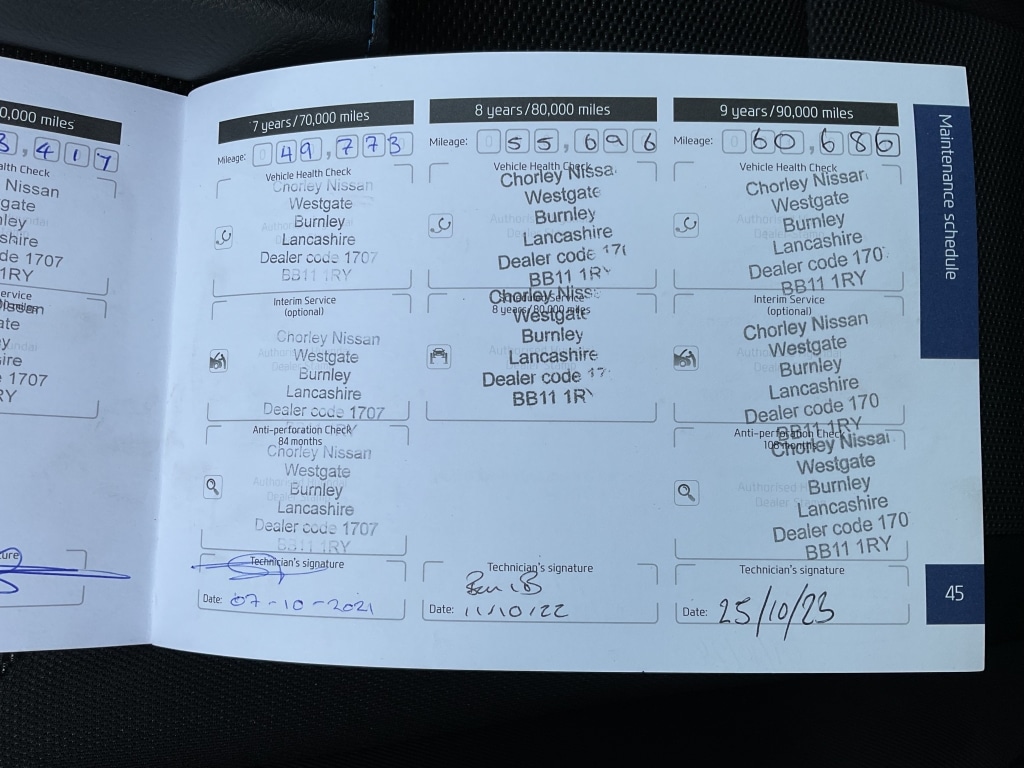 0,000 miles
3,417
alth Check
Nissan
gate
nley
shire
de 1707
1RY
ervice
Nissan
ate
y
ire
1707
RY
ure
7 years/70,000 miles
Mileage: 049,773
Vehicle Health Check
Chorley Nissan
Westgate
Burnley
Lancashire
Dealer code 1707
BB11 1RY
Interim Service
(optional)
Chorley Nissan
Westgate
Burnley
Lancashire
Dealer code 1707
Anti-perforation Check
84 months
Chorley Nissan
Westgate
Burnley
Lancashire
Dealer code 1707
BB11 1RY
Technician's signature
Date: 07-10-2021
8 years/80,000 miles
Mileage: 055,696
Vehicle Health Check
Chorley Nissa
Westgate
Burnley
Lancashire
Dealer code 170
BB11 1RY
Scheduled Service
8 years/80,000 miles
Chorley Niss
Westgate
Burnley
Lancashire
Dealer code 17
BB11 1RY
Technician's signature
Date: 11/10/22
9 years/90,000 miles
Mileage: 060,686
Vehicle Health Check
Chorley Nissan
Westgate
Burnley
Lancashire
Dealer code 170
BB11 1RY
Interim Service
(optional)
Chorley Nissan
Westgate
Burnley
Lancashire
Dealer code 170
BB11 1RY
Anti-perforation Check
108 months
Chorley Nissan
Westgate
Burnley
Lancashire
Dealer code 170
BB11 1RY
Technician's signature
Date: 25/10/23
Maintenance schedule
45